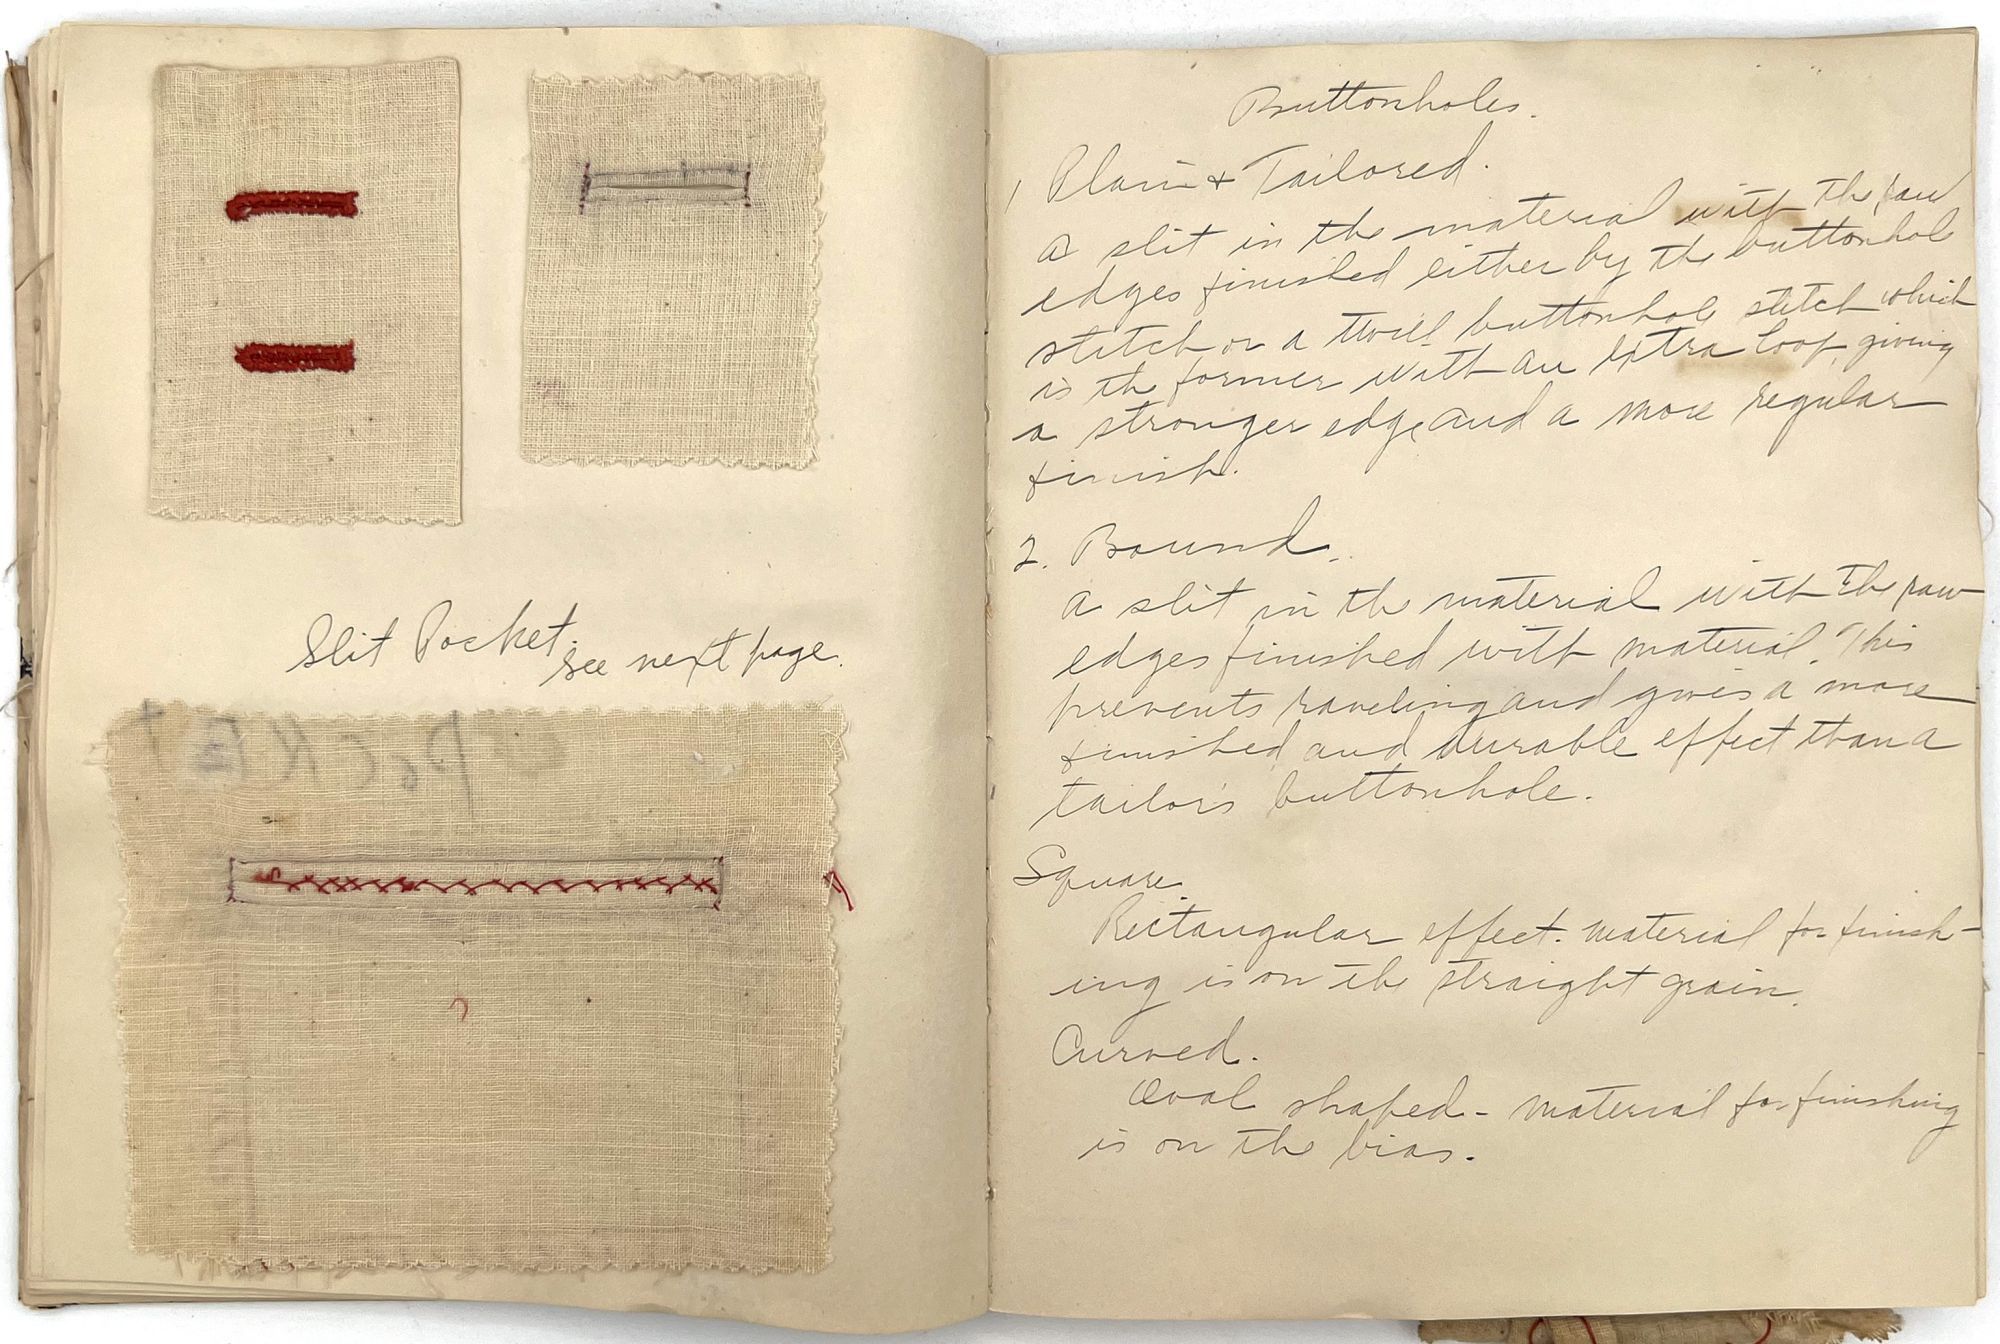 Slit Pocket.
see next page.
POCKET
Buttonholes.
1 Plain & Tailored.
a slit in the material with the raw
edges finished either by the buttonhole
stitch or a twill buttonhole stitch which
is the former with an extra loop, giving
a stronger edge and a more regular
finish.
2. Bound.
a slit in the material with the raw
edges finished with material. This
prevents raveling and gives a more
finished and durable effect than a
tailor's buttonhole.
Square
Rectangular effect. material for finish-
ing is on the straight grain.
Curved.
Oval shaped - material for finishing
is on the bias.